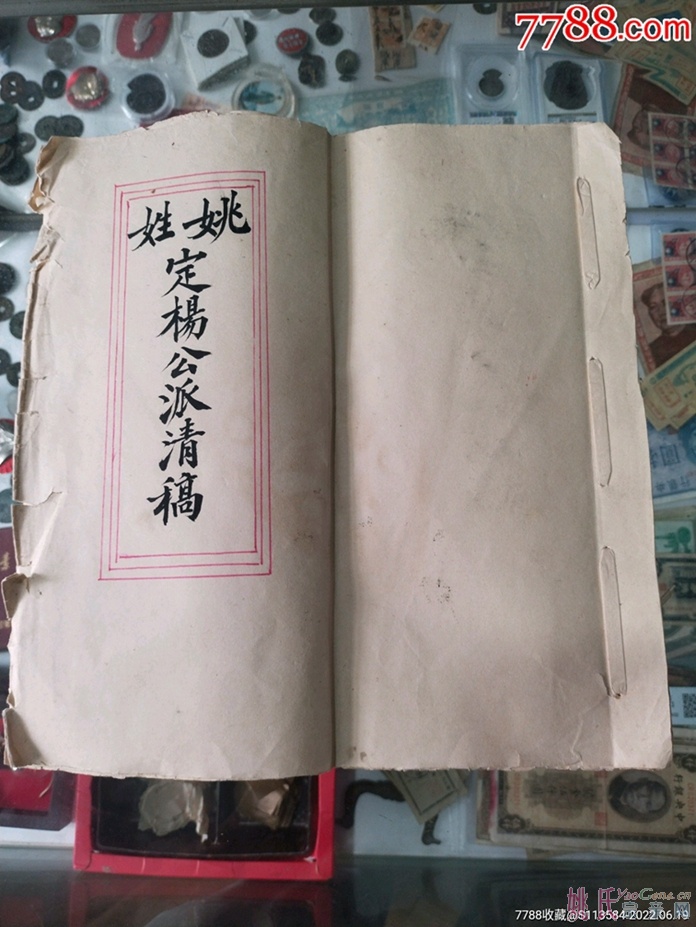 7788.com
姚姓
定楊公派清稿
中央銀行
姚氏宗亲网
YaoGens.cn
7788收藏@S113584-2022.06.19